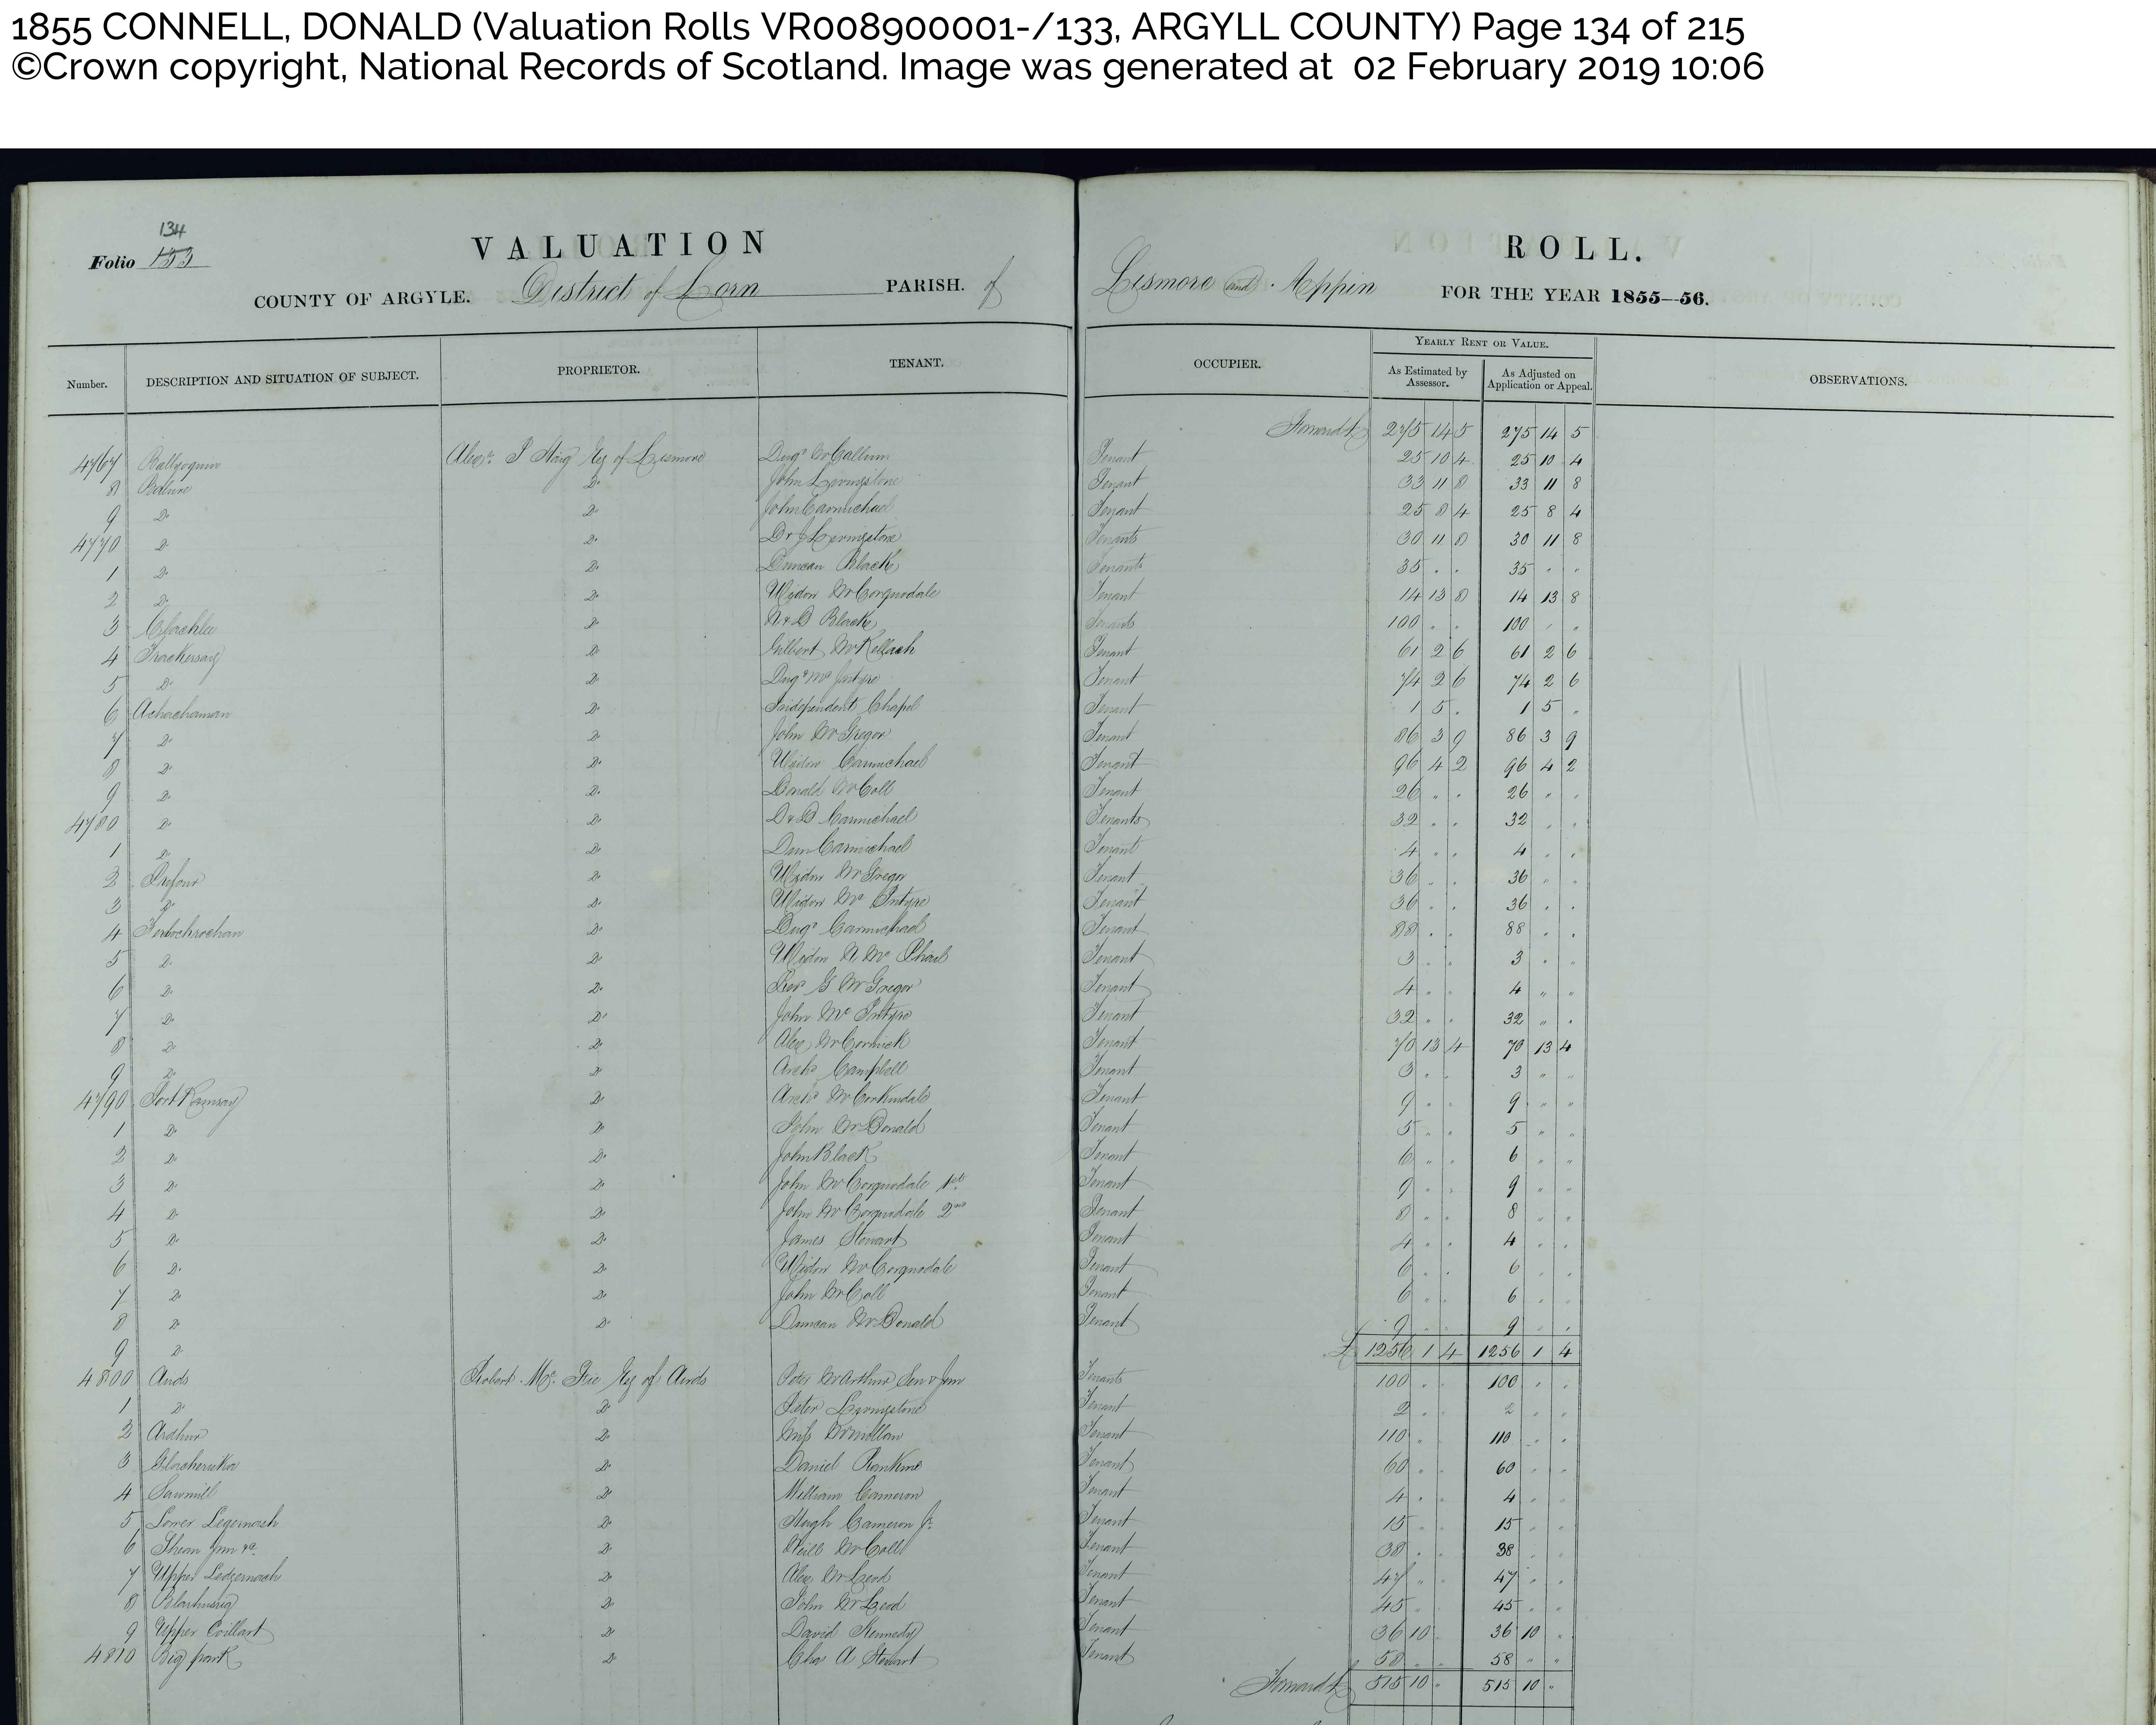 1855 CONNELL, DONALD (Valuation Rolls VR008900001-/133, ARGYLL COUNTY) Page 134 of 215
©Crown copyright, National Records of Scotland. Image was generated at 02 February 2019 10:06
134
Folio 153
VALUATION ROLL.
COUNTY OF ARGYLE. District of Lorn PARISH. of Lismore and Appin FOR THE YEAR 1855—56.
Number. DESCRIPTION AND SITUATION OF SUBJECT. PROPRIETOR. TENANT. OCCUPIER. YEARLY RENT OR VALUE. As Estimated by Assessor. As Adjusted on Application or Appeal. OBSERVATIONS.
Forward £ 275 14 5 275 14 5
4767 Alexr. Esq of Lismore Dugd McCallum Tenant 25 10 4 25 10 4
8 Balure Do John Livingstone Tenant 33 11 8 33 11 8
9 Do Do John Carmichael Tenant 25 8 4 25 8 4
4770 Do Do D & J Livingstone Tenants 30 11 8 30 11 8
1 Do Do Duncan Black Tenants 35 . . 35 . .
2 Do Do Widow McCorquodale Tenant 14 13 8 14 13 8
3 Do Black Tenants 100 . . 100 . .
4 Do Gilbert McKellaich Tenant 61 2 6 61 2 6
5 Do Do Dugd McIntyre Tenant 74 2 6 74 2 6
6 Achachaman Do Independent Chapel Tenant 1 5 . 1 5 .
7 Do Do John McGregor Tenant 86 3 9 86 3 9
8 Do Do Widow Carmichael Tenant 96 4 2 96 4 2
9 Do Do Donald McColl Tenant 26 . . 26 . .
4780 Do Do D & D Carmichael Tenants 32 . . 32 . .
1 Do Do Dun Carmichael Tenant 4 . . 4 . .
2 Do Widow McGregor Tenant 36 . . 36 . .
3 Do Do Widow McIntyre Tenant 36 . . 36 . .
4 Do Dugd Carmichael Tenant 88 . . 88 . .
5 Do Do Widow N McPhail Tenant 3 . . 3 . .
6 Do Do Rev G McGregor Tenant 4 . . 4 . .
7 Do Do John McIntyre Tenant 32 . . 32 . .
8 Do Do Alex McCormick Tenant 70 13 4 70 13 4
9 Do Do Archd Campbell Tenant 3 . . 3 . .
4790 Port Ramsay Do Archd McCorkindale Tenant 9 . . 9 . .
1 Do Do John McDonald Tenant 5 . . 5 . .
2 Do Do John Black Tenant 6 . . 6 . .
3 Do Do John McCorquodale 1st Tenant 9 . . 9 . .
4 Do Do John McCorquodale 2nd Tenant 8 . . 8 . .
5 Do Do James Stewart Tenant 4 . . 4 . .
6 Do Do Widow McCorquodale Tenant 6 . . 6 . .
7 Do Do John McColl Tenant 6 . . 6 . .
8 Do Do Duncan McDonald Tenant 9 . . 9 . .
9 Do £ 1256 1 4 1256 1 4
4800 Airds Robert McFie Esq of Airds Peter McArthur Sen & Jun Tenants 100 . . 100 . .
1 Do Do Peter Livingstone Tenant 2 . . 2 . .
2 Do Miss McMillan Tenant 110 . . 110 . .
3 Do Daniel Rankine Tenant 60 . . 60 . .
4 Sawmill Do William Cameron Tenant 4 . . 4 . .
5 Lower Do Hugh Cameron Jr. Tenant 15 . . 15 . .
6 Shean Inn &c. Do Neill McColl Tenant 38 . . 38 . .
7 Upper Do Alex McLeod Tenant 47 . . 47 . .
8 Do John McLeod Tenant 45 . . 45 . .
9 Upper Do David Kennedy Tenant 36 10 . 36 10 .
4810 Big park Do Chas A Stewart Tenant 58 . . 58 . .
Forward £ 515 10 . 515 10 .